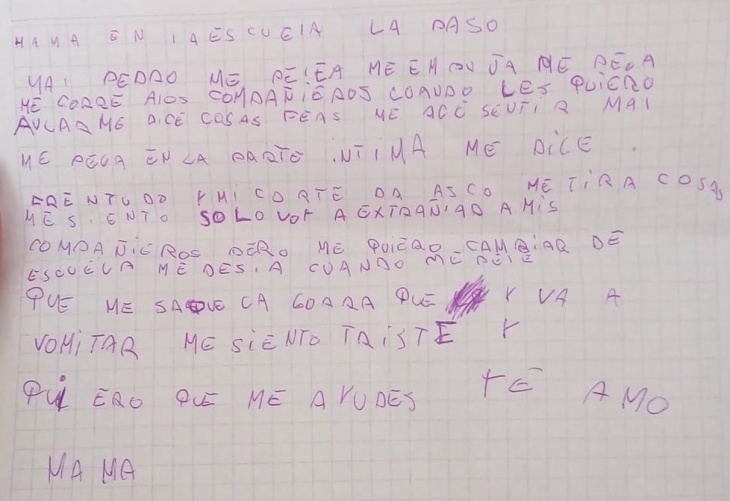 MAMA EN LA ESCUELA LA PASO
MAL PEDRO ME PELEA ME EMPUJA ME PEGA
ME CORRE A LOS COMPAÑIEROS CUANDO LES QUIERO
AVLAR ME DICE COSAS FEAS ME ACE SENTIR MAL
ME PEGA EN LA PARTE INTIMA ME DICE
FRENTUDO Y MI CORTE DA ASCO ME TIRA COSAS
ME SIENTO SOLO VOY A EXTRAÑIAR A MIS
COMPAÑIEROS PERO ME QUIERO CAMBIAR DE
ESCUELA ME DESIA CUANDO ME PELE
QUE ME SAQUE LA GORRA QUE Y VA A
VOMITAR ME SIENTO TRISTE Y
QUIERO QUE ME AYUDES TE AMO
MAMA